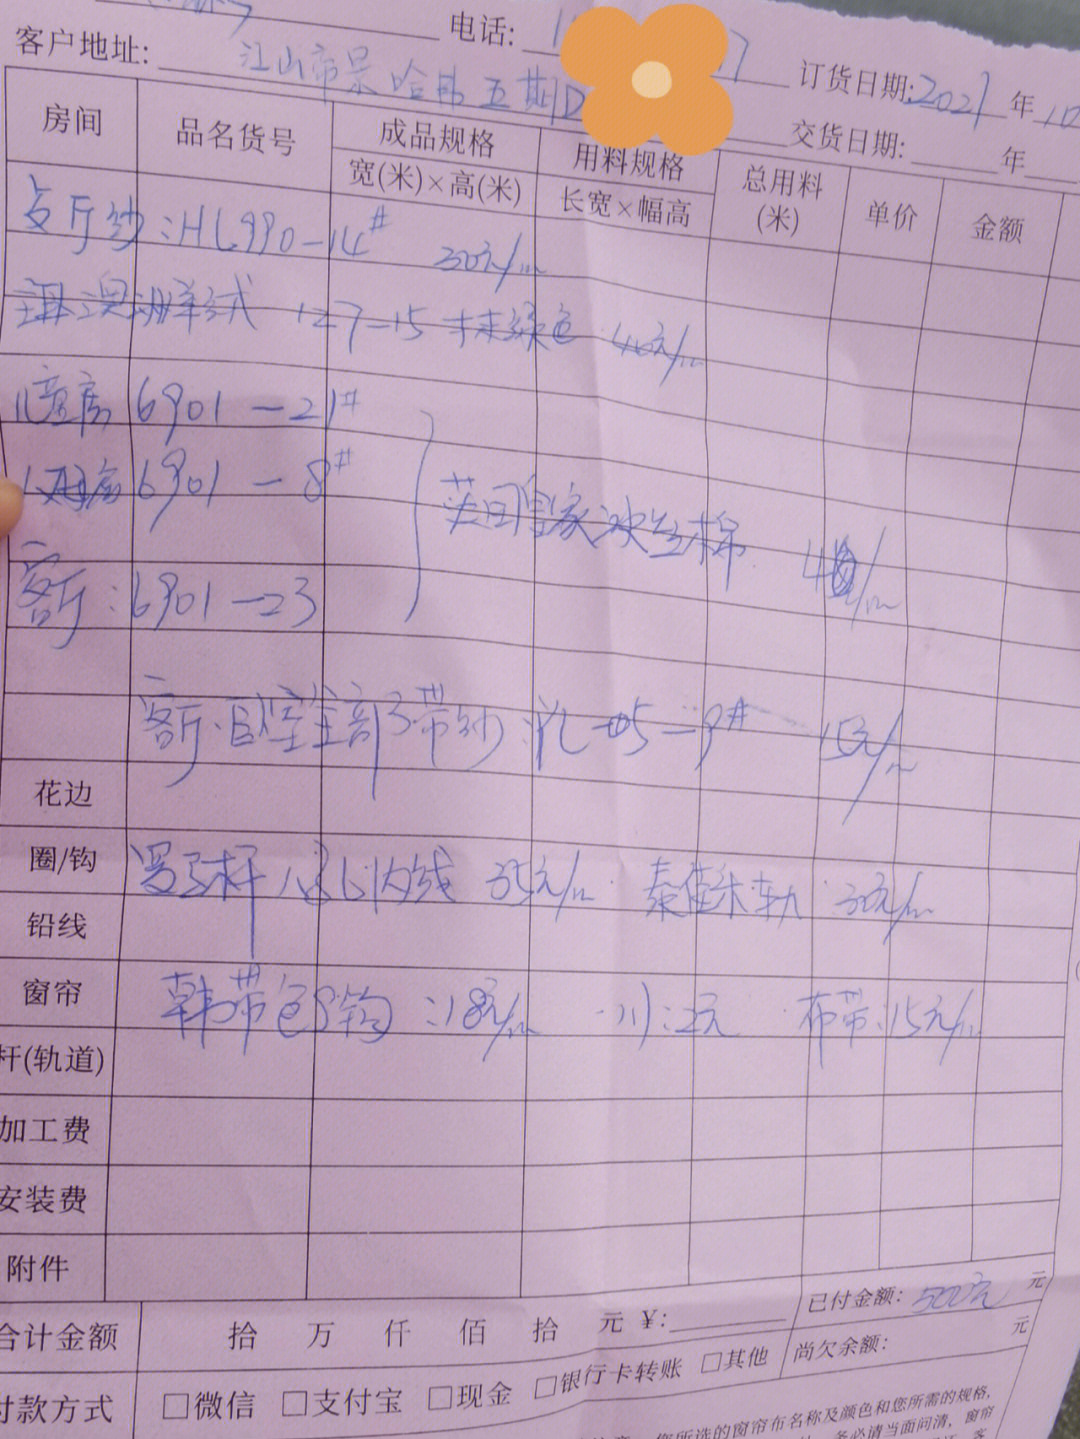 电话:
客户地址: 江山市 哈 五期D
订货日期:2021年10
交货日期: 年
房间 品名货号 成品规格 用料规格 总用料(米) 单价 金额
宽(米)×高(米) 长宽×幅高
厅纱:HL990-14# 30元/m
澳洲羊绒 127-15 抹绿色 元/m
儿童房 6901-21#
房 6901-8#
美国皇家冰丝棉 /m
客厅:6901-23
客厅·卧室全部 带纱: 05-9# 15元/m
花边
圈/钩 罗马杆 内线 35元/m 泰佳 轨 30元/m
铅线
窗帘 韩带包S钩:18元/m ·川:2元 ·布带:15元/m
杆(轨道)
加工费
安装费
附件
合计金额 拾 万 仟 佰 拾 元 ¥: 已付金额: 500元 元
尚欠余额: 元
付款方式 □微信 □支付宝 □现金 □银行卡转账 □其他
您所选的窗帘布名称及颜色和您所需的规格,
务必请当面问清,窗帘